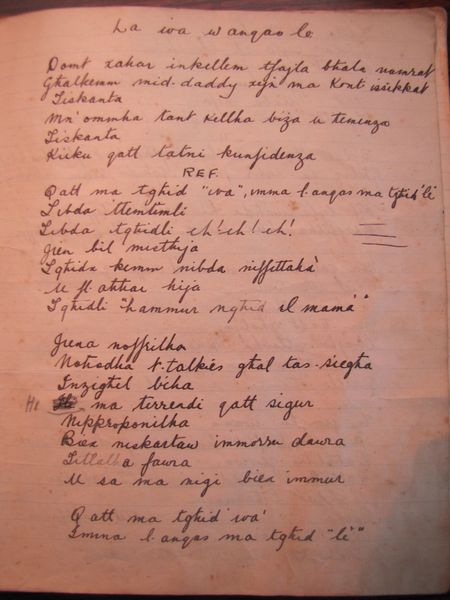 La iva w anqas le
Domt xahar inkellem tfajla bhala namrat
Ghalkemm mid-daddy xejn ma kont issikkat
Tiskanta
Mn' ommha tant kellha biza u temenza
Tiskanta
Kieku qatt tatni kunfidenza
REF.
Qatt ma tghid "iva", imma l'anqas ma tghid "le"
Tibda ttemtimli
Tibda tghidli eh! eh! eh!
Jien bil misthija
Tghidx kemm nibda niffittahà
U fl-ahhar hija
Tghidli "hammur nghid il mamà"
Jiena noffrilha
Nohodha t-talkies ghal tas-siegha
Inzighil biha
Hi ma tirrendi qatt sigur
Nipproponilha
Biex niskartaw immorru dawra
Titlalba fawra
U sa ma nigi biex immur
Qatt ma tghid 'iva'
Imma l'anqas ma tghid "le"